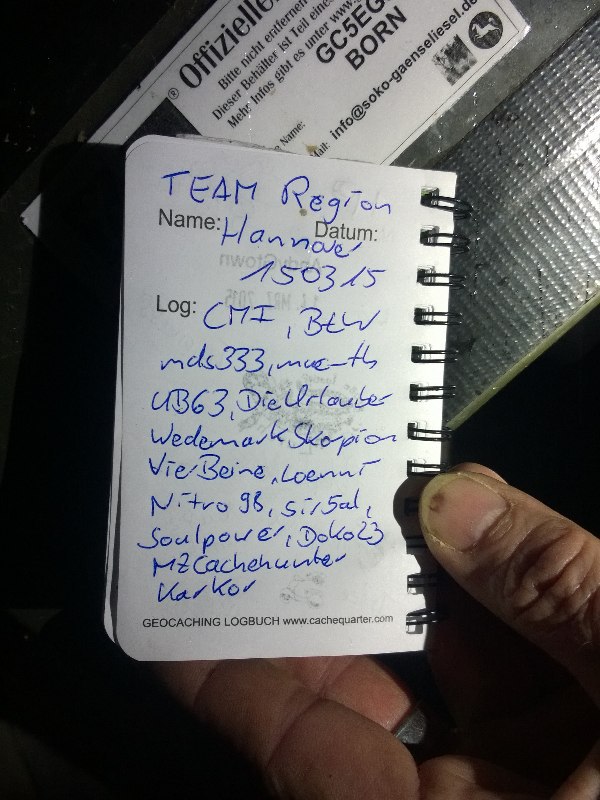 Offizielle
Bitte nicht entfernen
Dieser Behälter ist Teil eines
Mehr Infos gibt es unter www.
GC5EG
BORN
Name:
info@soko-gaenseliesel.de
TEAM Region
Name: Hannover Datum:
150315
Log: CMI, BtW
mds333, muc-th
UB63, DieUrlauber
WedemarkSkorpion
VierBeine, Loenni
Nitro98, sir5al,
Soulpower, Doko23
MZCachehunter
KarKor
GEOCACHING LOGBUCH www.cachequarter.com